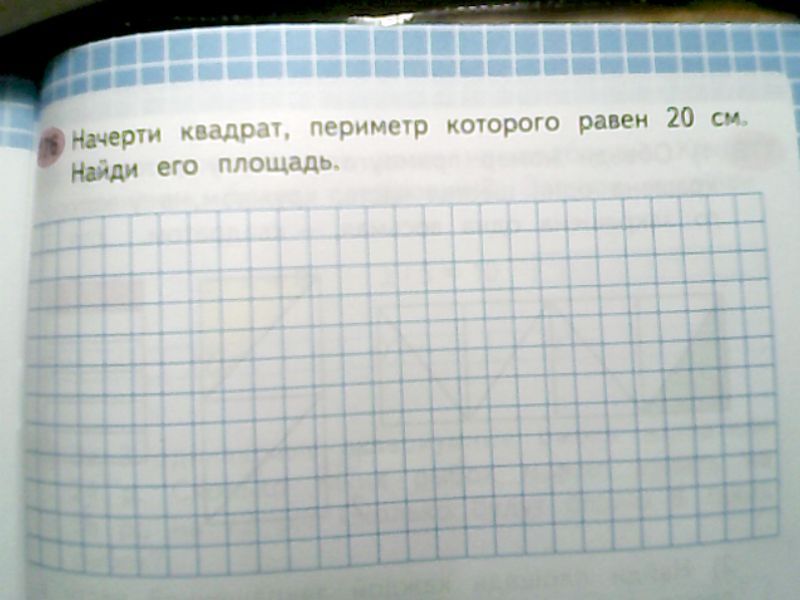 76 Начерти квадрат, периметр которого равен 20 см.
Найди его площадь.